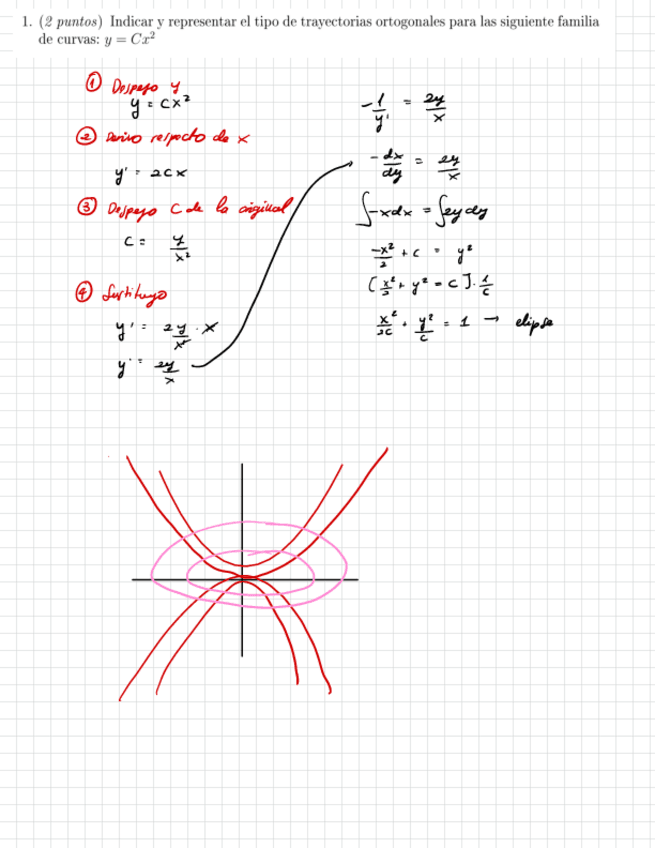 1. (2 puntos) Indicar y representar el tipo de trayectorias ortogonales para las siguiente familia
de curvas: y = Cx²
① Despejo y
y = cx²
② Derivo respecto de x
y' = 2cx
③ Despejo C de la original
c = y/x²
④ Sustituyo
y' = 2y/x² · x
y' = 2y/x
-1/y' = 2y/x
-dx/dy = 2y/x
∫-xdx = ∫2ydy
-x²/2 + c = y²
[x²/2 + y² = c] · 1/c
x²/2c + y²/c = 1 → elipse